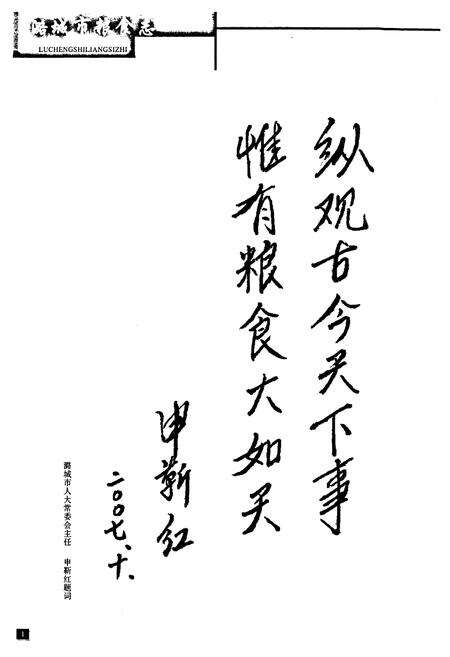 潞城市粮食志
LUCHENGSHILIANGSIZHI
纵观古今天下事
惟有粮食大如天
申靳红
二〇〇七、十、
潞城市人大常委会主任 申靳红题词
1